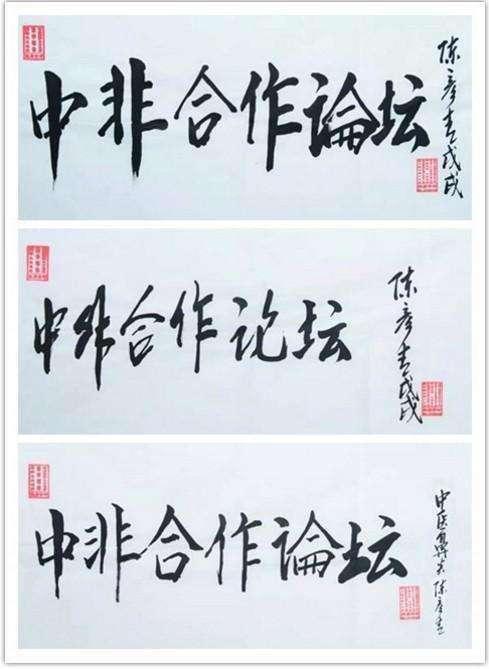 中非合作論坛
陈彦 戊戌
中非合作论坛
陈彦 戊戌
中非合作論坛
中医 陈彦